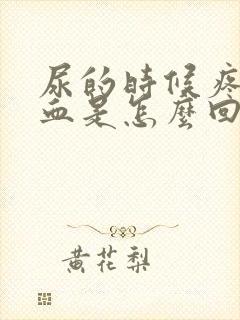 尿的時候疼
血是怎麼回
黄花梨